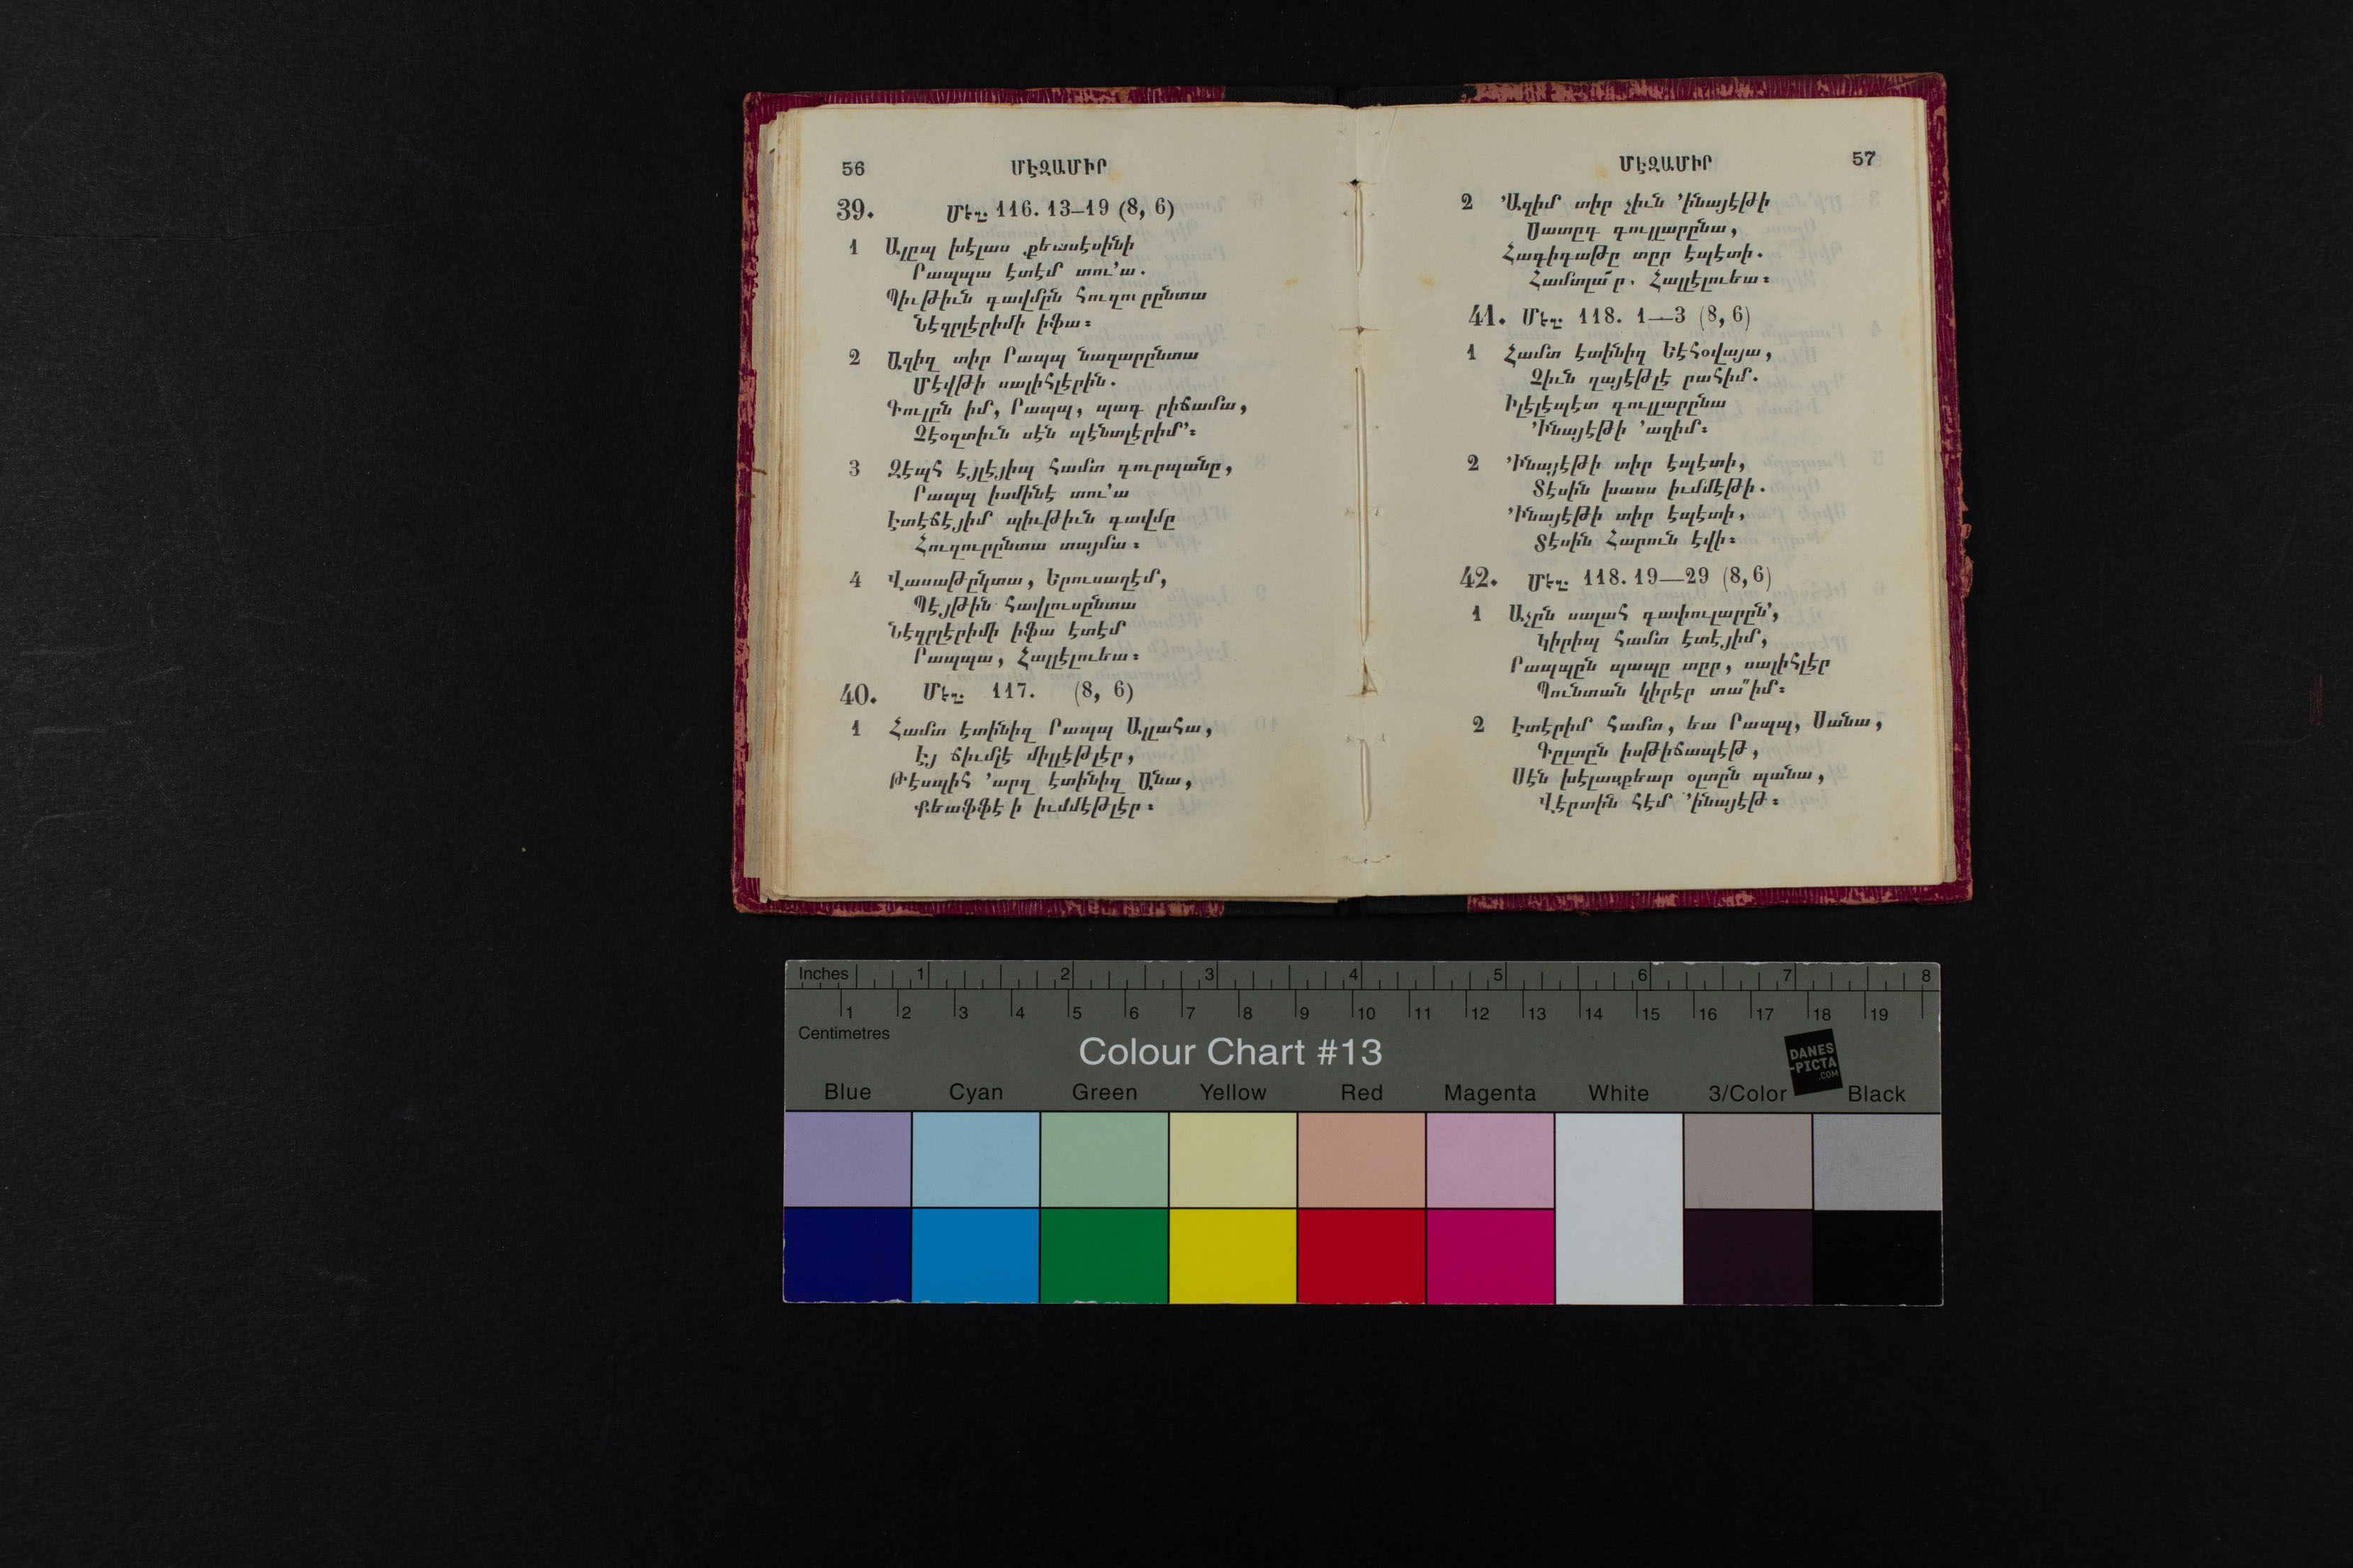 56 ՄԷԶԱՄԻՐ
39. Մէզ. 116. 13—19 (8, 6)
1 Ալըպ խէլաս քեասէսինի
Րապպա էտէմ տու՚ա.
Պիւթիւն գավմըն հուզուրընտա
Նէզրլէրիմի իֆա։
2 Ազիզ տիր Րապպ նազարընտա
Մէվթի սալիհլէրին.
Գուլըն իմ, Րապպ, պագ րիճամա,
Չէօզտիւն սէն պէնտլէրիմ՚։
3 Զէպհ էյլէյիպ համտ գուրպանը,
Րապպ իսմինէ տու՚ա
Էտէճէյիմ պիւթիւն գավմը
Հուզուրընտա տայմա։
4 Վասաթընկտա, Երուսաղէմ,
Պէյթին հավլուսընտա
Նէզրլէրիմի իֆա էտէմ
Րապպա, Հալլէլուեա։
40. Մէզ. 117. (8, 6)
1 Համտ էտինիզ Րապպ Ալլահա,
Էյ ճիւմլէ միլլէթլէր,
Թէսպիհ ՚արզ էտինիզ Անա,
Քեաֆֆէ ի իւմմէթլէր։
ՄԷԶԱՄԻՐ 57
2 ՚Ազիմ տիր չիւն ՚ինայէթի
Սատըգ գուլլարընա,
Հագիգաթը տըր էպէտի.
Համտլա՜ր. Հալլէլուեա։
41. Մէզ. 118. 1—3 (8, 6)
1 Համտ էտինիզ Եէհօվայա,
Չիւն ղայէթլէ րահիմ.
Իլէլէպէտ գուլլարընա
՚Ինայէթի ՚ազիմ։
2 ՚Ինայէթի տիր էպէտի,
Տէսին խասս իւմմէթի.
՚Ինայէթի տիր էպէտի,
Տէսին Հարուն էվի։
42. Մէզ. 118. 19—29 (8, 6)
1 Աչըն սալահ գափուլարըն՚,
Կիրիպ համտ էտէյիմ,
Րապպըն պապը տըր, սալիհլէր
Պունտան կիրէր տա՚՚իմ։
2 Էտէրիմ համտ, եա Րապպ, Սանա,
Գըլտըն իսթիճապէթ,
Սէն խէլասքեար օլտըն պանա,
Վէրտին հէմ ՚ինայէթ։
Inches 1 2 3 4 5 6 7 8
1 2 3 4 5 6 7 8 9 10 11 12 13 14 15 16 17 18 19
Centimetres
Colour Chart #13
DANES
-PICTA
.COM
Blue Cyan Green Yellow Red Magenta White 3/Color Black